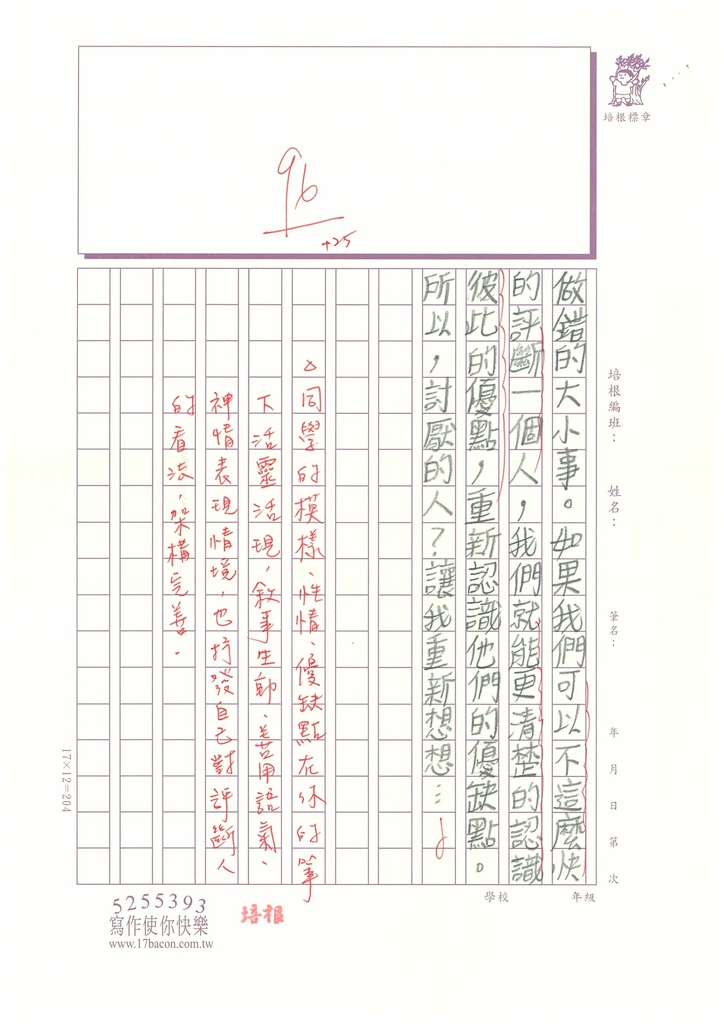 96
+25
培根標章
培根編班：
姓名：
筆名：
年 月 日 第 次
年級
學校
做錯的大小事。如果我們可以不這麼快
的評斷一個人，我們就能更清楚的認識
彼此的優點，重新認識他們的優缺點。
所以，討厭的人？讓我重新想想…
△同學的模樣、性情、優缺點在你的筆
下活靈活現，敘事生動、善用語氣、
神情表現情境，也抒發自己對評斷人
的看法，架構完善．
17×12=204
5255393
寫作使你快樂
www.17bacon.com.tw
培根